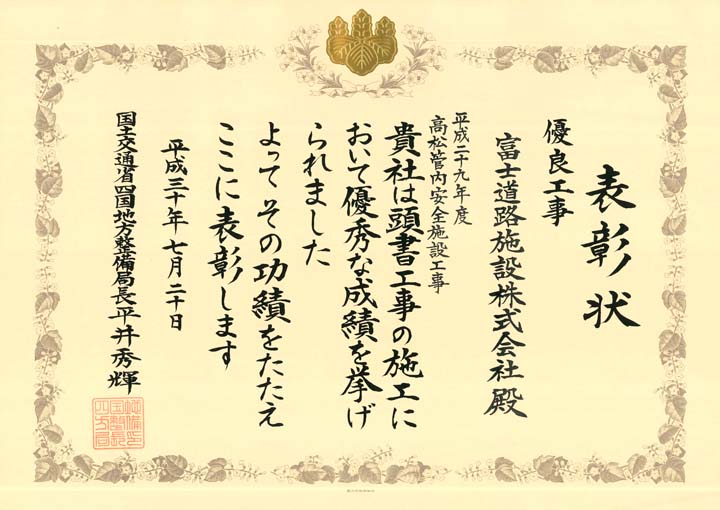 表彰状
優良工事
富士道路施設株式会社殿
平成二十九年度
高松管内安全施設工事
貴社は頭書工事の施工に
おいて優秀な成績を挙げ
られました
よってその功績をたたえ
ここに表彰します
平成三十年七月二十日
国土交通省四国地方整備局長平井秀輝